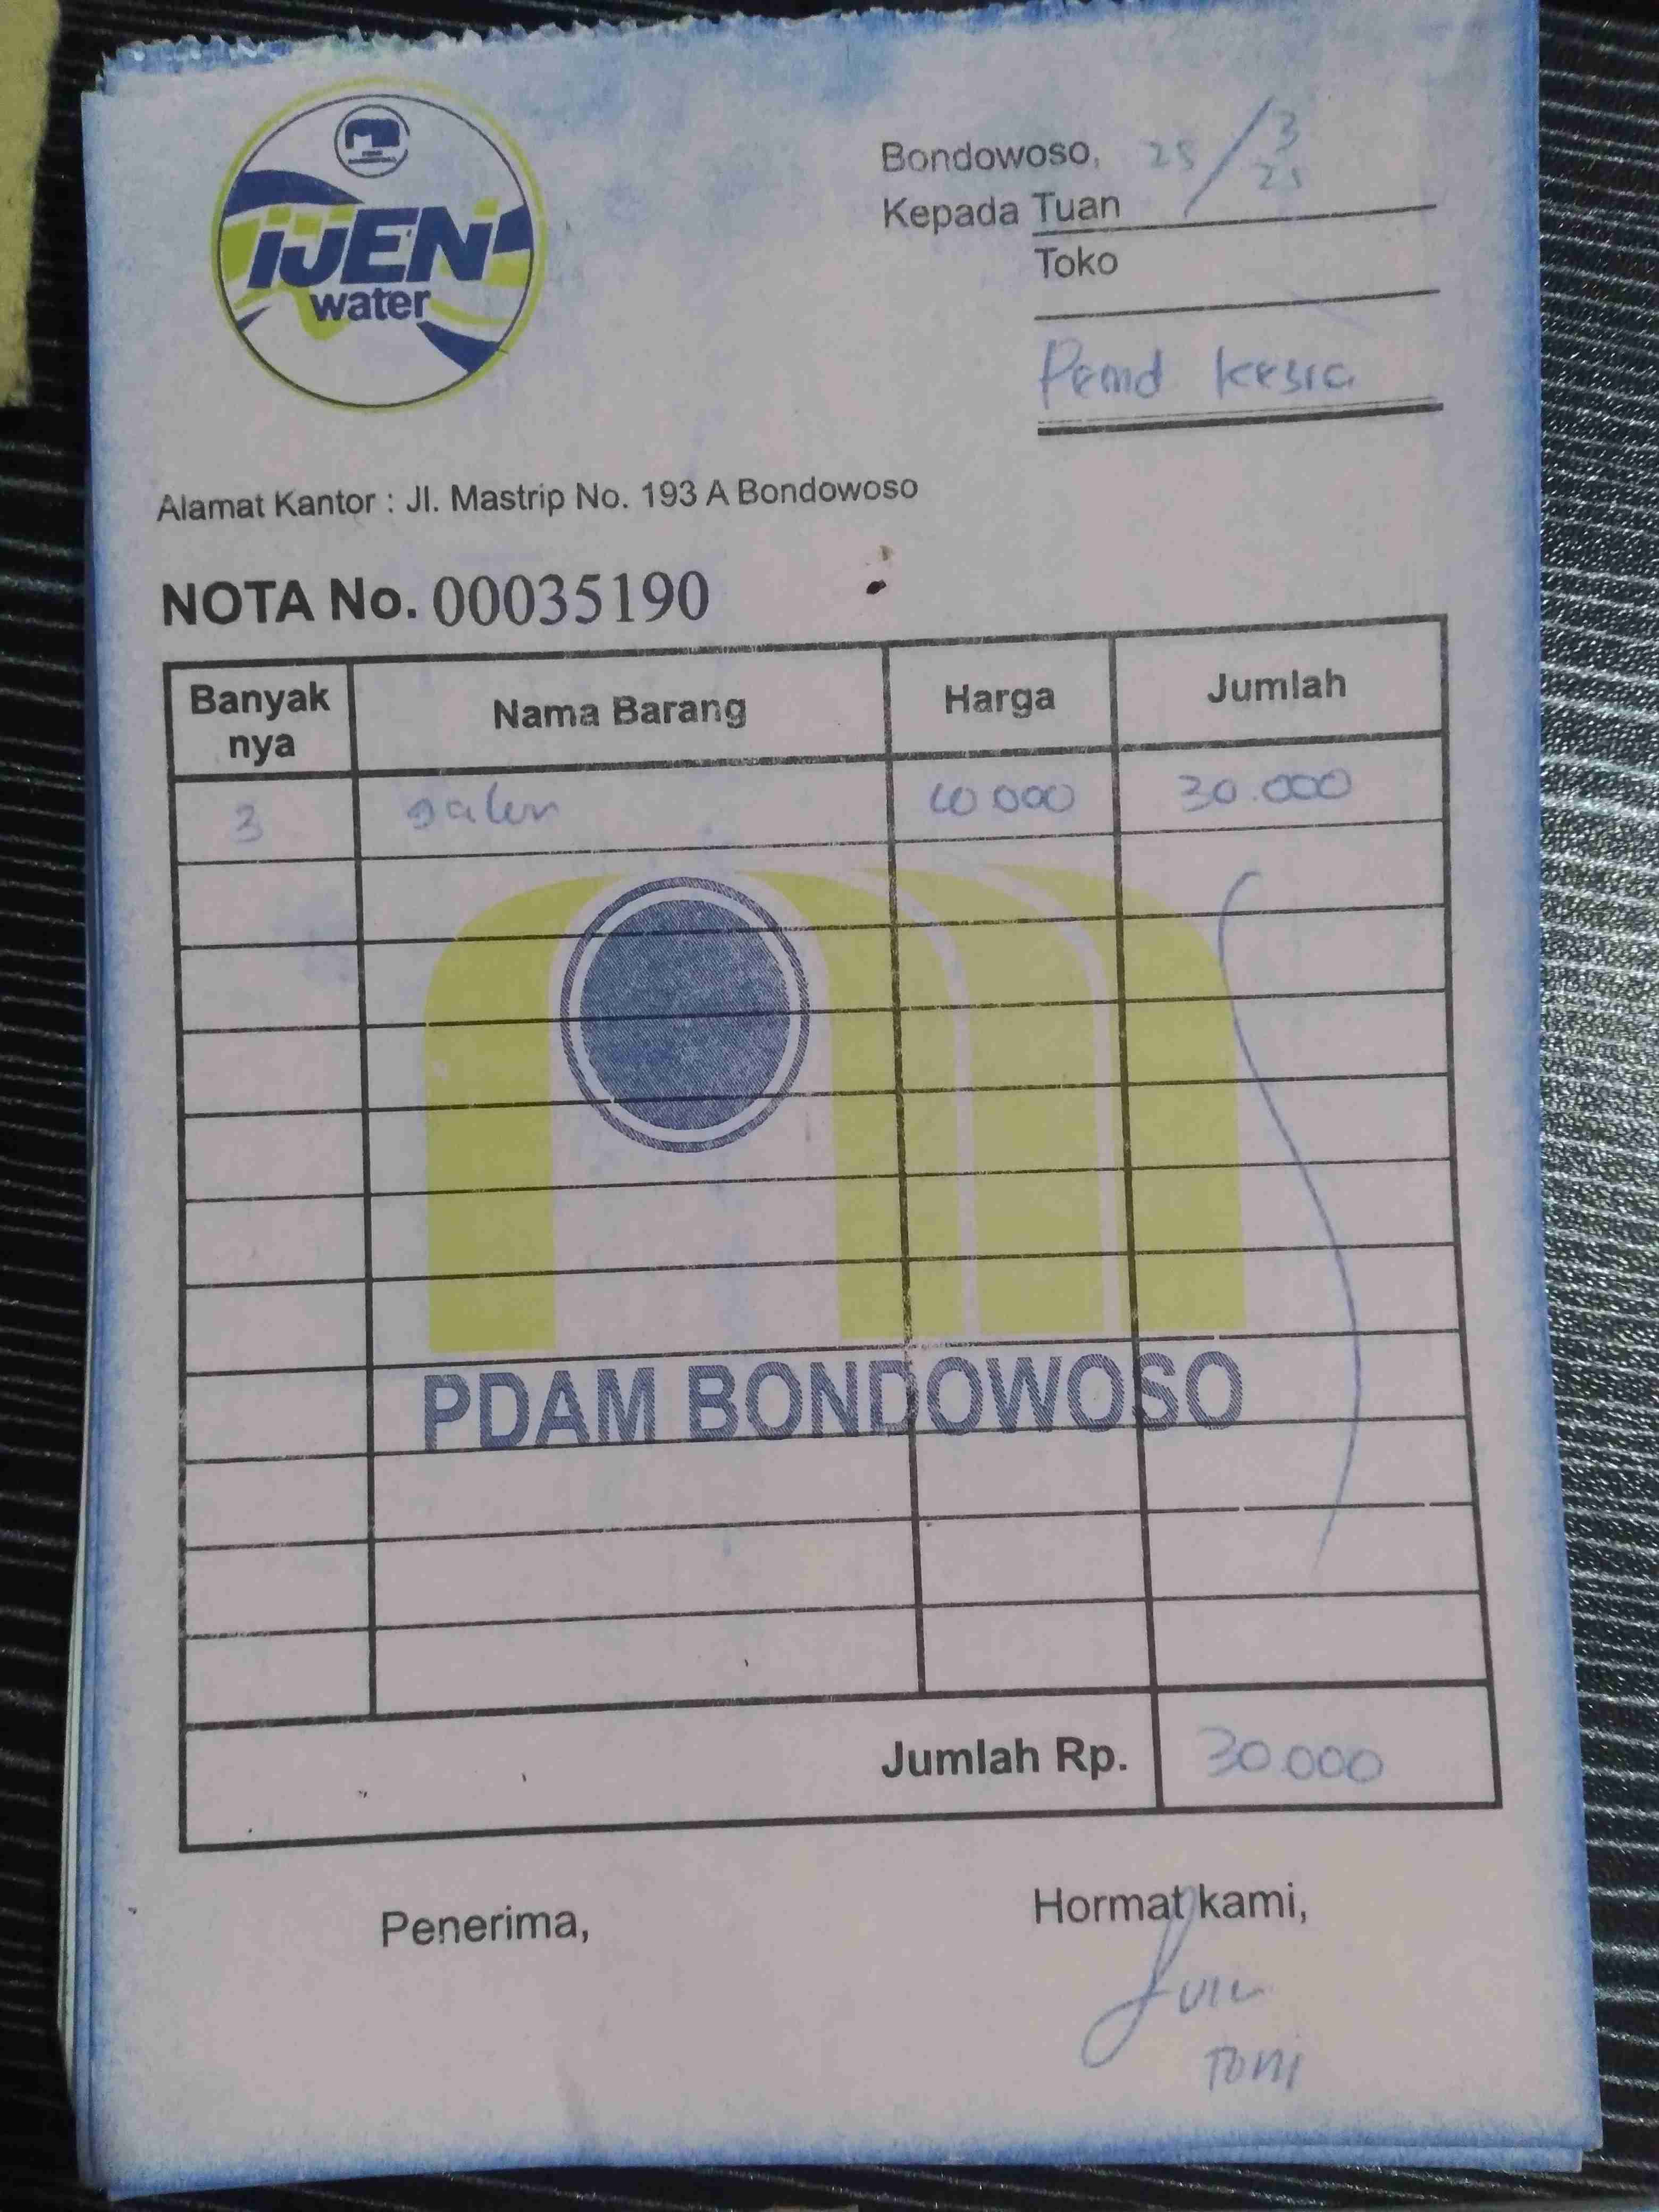 iJEN
water
Bondowoso, 25/3
Kepada Tuan
Toko
Pemd kesra
Alamat Kantor : Jl. Mastrip No. 193 A Bondowoso
NOTA No. 00035190
Banyak nya Nama Barang Harga Jumlah
3 galon 10.000 30.000
PDAM BONDOWOSO
Jumlah Rp. 30.000
Penerima,
Hormat kami,
Tomi